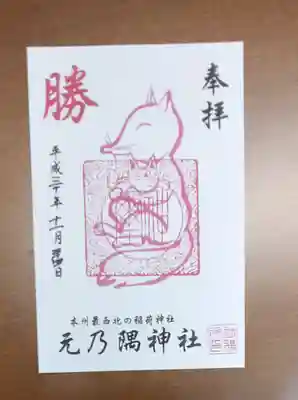 奉拝
勝
平成三十年十一月
日
本州最西北の稲荷神社
元乃隅神社